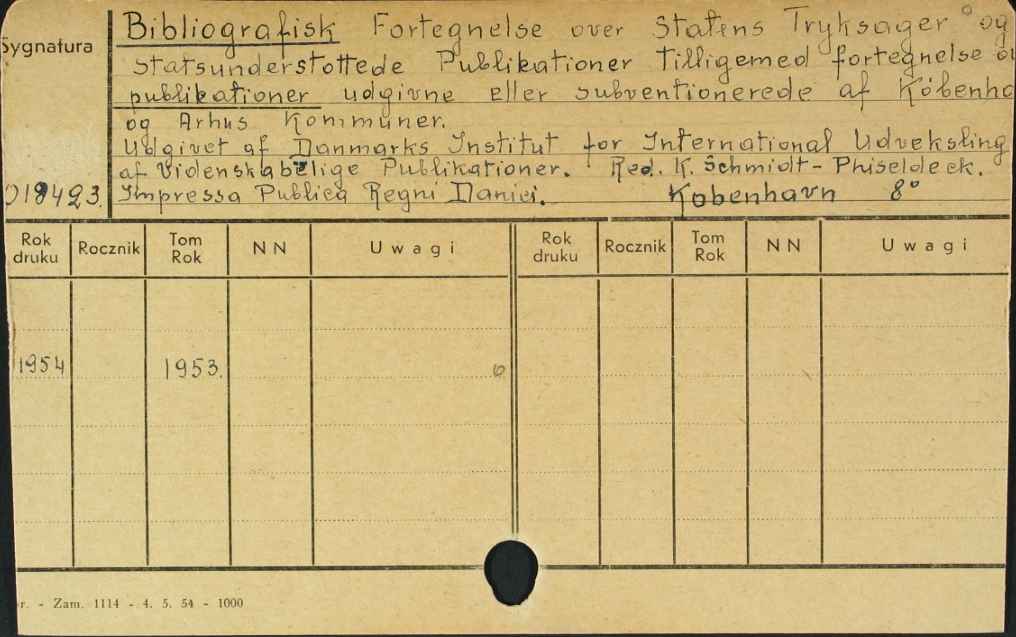 Sygnatura
Bibliografisk Fortegnelse over Statens Tryksager og
statsunderstottede Publikationer tilligemed fortegnelse ov
publikationer udgivne eller subventionerede af Københa
og Arhus Kommuner.
Udgivet af Danmarks Institut for International Udveksling
af Videnskabelige Publikationer. Red. K. Schmidt-Phiseldeck.
Impressa Publica Regni Danici. København 8°
Rok druku Rocznik Tom Rok NN Uwagi Rok druku Rocznik Tom Rok NN Uwagi
1954 1953. 6
r. - Zam. 1114 - 4. 5. 54 - 1000